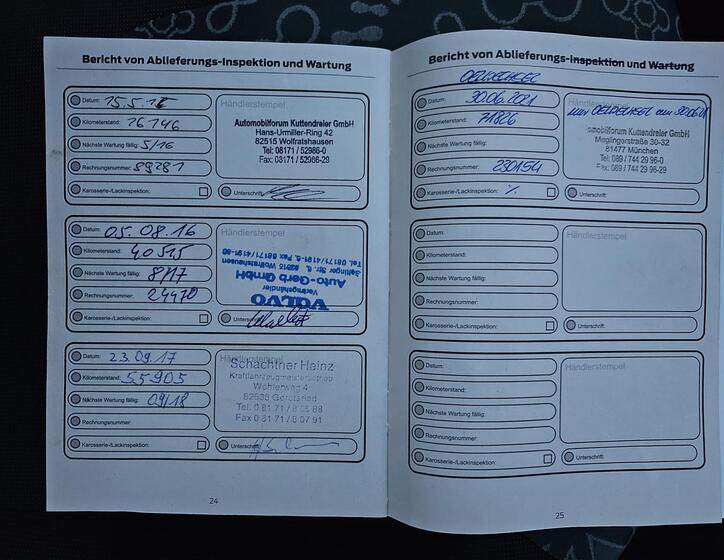 Bericht von Ablieferungs-Inspektion und Wartung
Datum: 15.5.15
Händlerstempel
Kilometerstand: 26146
Nächste Wartung fällig: 5/16
Rechnungsnummer: 59281
Karosserie-/Lackinspektion:
Automobilforum Kuttendreier GmbH
Hans-Urmiller-Ring 42
82515 Wolfratshausen
Tel: 08171 / 52986-0
Fax: 08171 / 52986-29
Unterschrift:
Datum: 05.08.16
Händlerstempel
Kilometerstand: 40515
Nächste Wartung fällig: 8/17
Rechnungsnummer: 24470
Karosserie-/Lackinspektion:
VOLVO
Vertragshändler
Auto-Gerb GmbH
Unterschrift:
Datum: 23.09.17
Händlerstempel
Kilometerstand: 55905
Nächste Wartung fällig: 09/18
Rechnungsnummer:
Karosserie-/Lackinspektion:
Schachtner Heinz
Kraftfahrzeugmeisterbetrieb
82538 Geretsried
Unterschrift:
24
Bericht von Ablieferungs-Inspektion und Wartung
OELWECHSEL
Datum: 30.06.2021
Händlerstempel
Kilometerstand: 71826
Nächste Wartung fällig:
Rechnungsnummer: 230154
Karosserie-/Lackinspektion: %
nur OELWECHSEL am 30.06.21
Automobilforum Kuttendreier GmbH
Meglingerstraße 30-32
81477 München
Tel: 089 / 744 29 96-0
Fax: 089 / 744 29 96-29
Unterschrift:
Datum:
Händlerstempel
Kilometerstand:
Nächste Wartung fällig:
Rechnungsnummer:
Karosserie-/Lackinspektion:
Unterschrift:
Datum:
Händlerstempel
Kilometerstand:
Nächste Wartung fällig:
Rechnungsnummer:
Karosserie-/Lackinspektion:
Unterschrift:
25